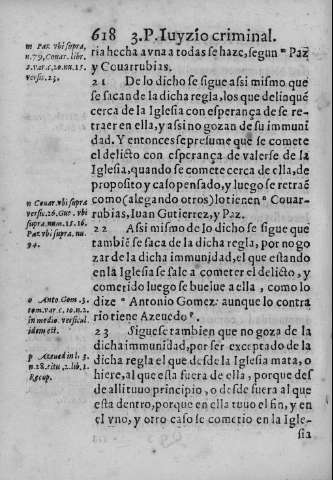 618 3. P. Iuyzio criminal.
m Paz vbi supra,
n. 79, Couar. libr.
2. var. c. 20. nu. 15.
versic. 23.
ria hecha a vna a todas se haze, segun m Paz
y Couarrubias.
21 De lo dicho se sigue assi mismo que
se sacan de la dicha regla, los que delinquẽ
cerca de la Iglesia con esperança de se re-
traer en ella, y assi no gozan de su immuni
dad. Y entonces se presume que se comete
el delicto con esperança de valerse de la
Iglesia, quando se comete cerca de ella, de
proposito y caso pensado, y luego se retraẽ
como (alegando otros) lo tienen n Couar-
rubias, Iuan Gutierrez, y Paz.
n Couar. vbi supra
versic. 26. Gut. vbi
supra num. 15. 16.
Paz vbi supra, nu.
94.
22 Assi mismo de lo dicho se sigue que
tambiẽ se saca de la dicha regla, por no go
zar de la dicha immunidad, el que estando
en la Iglesia se sale a cometer el delicto, y
cometido luego se buelue a ella, como lo
dize o Antonio Gomez: aunque lo contra
rio tiene Azeuedo p.
o Anto. Gom. 3.
tom. var. c. 10. n. 2.
in medio. versicul.
idem est.
23 Siguese tambien que no goza de la
dicha immunidad, por ser exceptado de la
dicha regla el que desde la Iglesia mata, o
hiere, al que esta fuera de ella, porque des
de alli tuuo principio, o desde fuera al que
esta dentro, porque en ella tuuo el fin, y en
el vno, y otro caso se cometio en la Igle-
sia
p Azeued. in l. 3.
n. 28. titu. 2. lib. 1.
Recop.